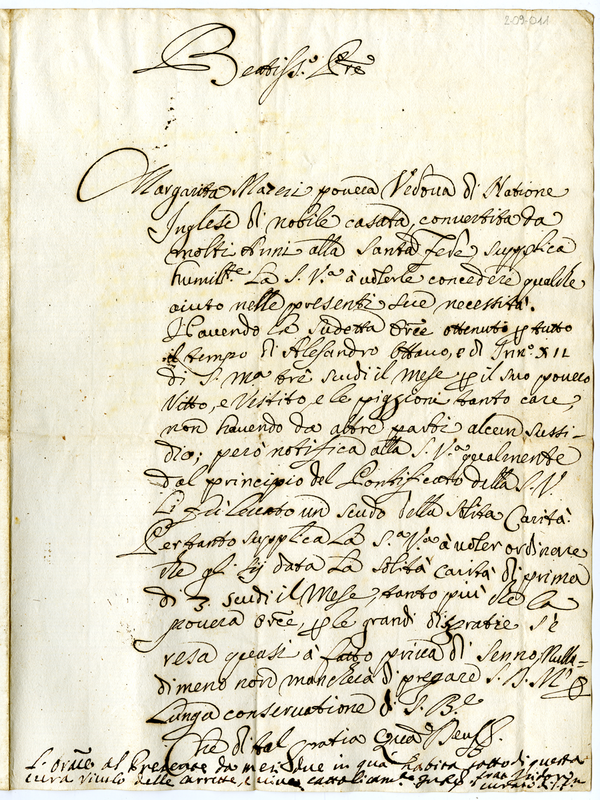 2-09-011
Beatiss.o P're
Margarita Mazeri povera Vedova di Natione
Inglese di nobile casata, convertita da
molti Anni alla Santa Fede, supplica
humilte. La S. V.a à volerle concedere qualche
aiuto nelle presenti sue necessità.
Havendo la sudetta Orce ottenuto p tutto
il tempo di Alesandro Ottavo, e di Inn.o XII
di S. ma tre scudi il mese p il suo povero
Vitto, e Vistito, e le piggioni tanto care,
non havendo da altre parti alcun sussi-
dio; però notifica alla S. V.a qualmente
dal principio del Pontificato della S. V.
Li fù levato un scudo della solita Carità.
Pertanto supplica La S.a V.a à voler ordinare
che gli sij data La solita carità di prima
di 3 scudi il Mese, tanto più che la
povera Orce, p le grandi disgratie si è
resa quasi à fatto priva di senno, Nulla-
dimeno non mancherà di pregare S. D. M.
Lunga conservatione di S. B.e
Che di tal gratia Quam Deus &.
L'Orãce al presente da mesi due in qua habita sotto di questa
cura vicolo delle